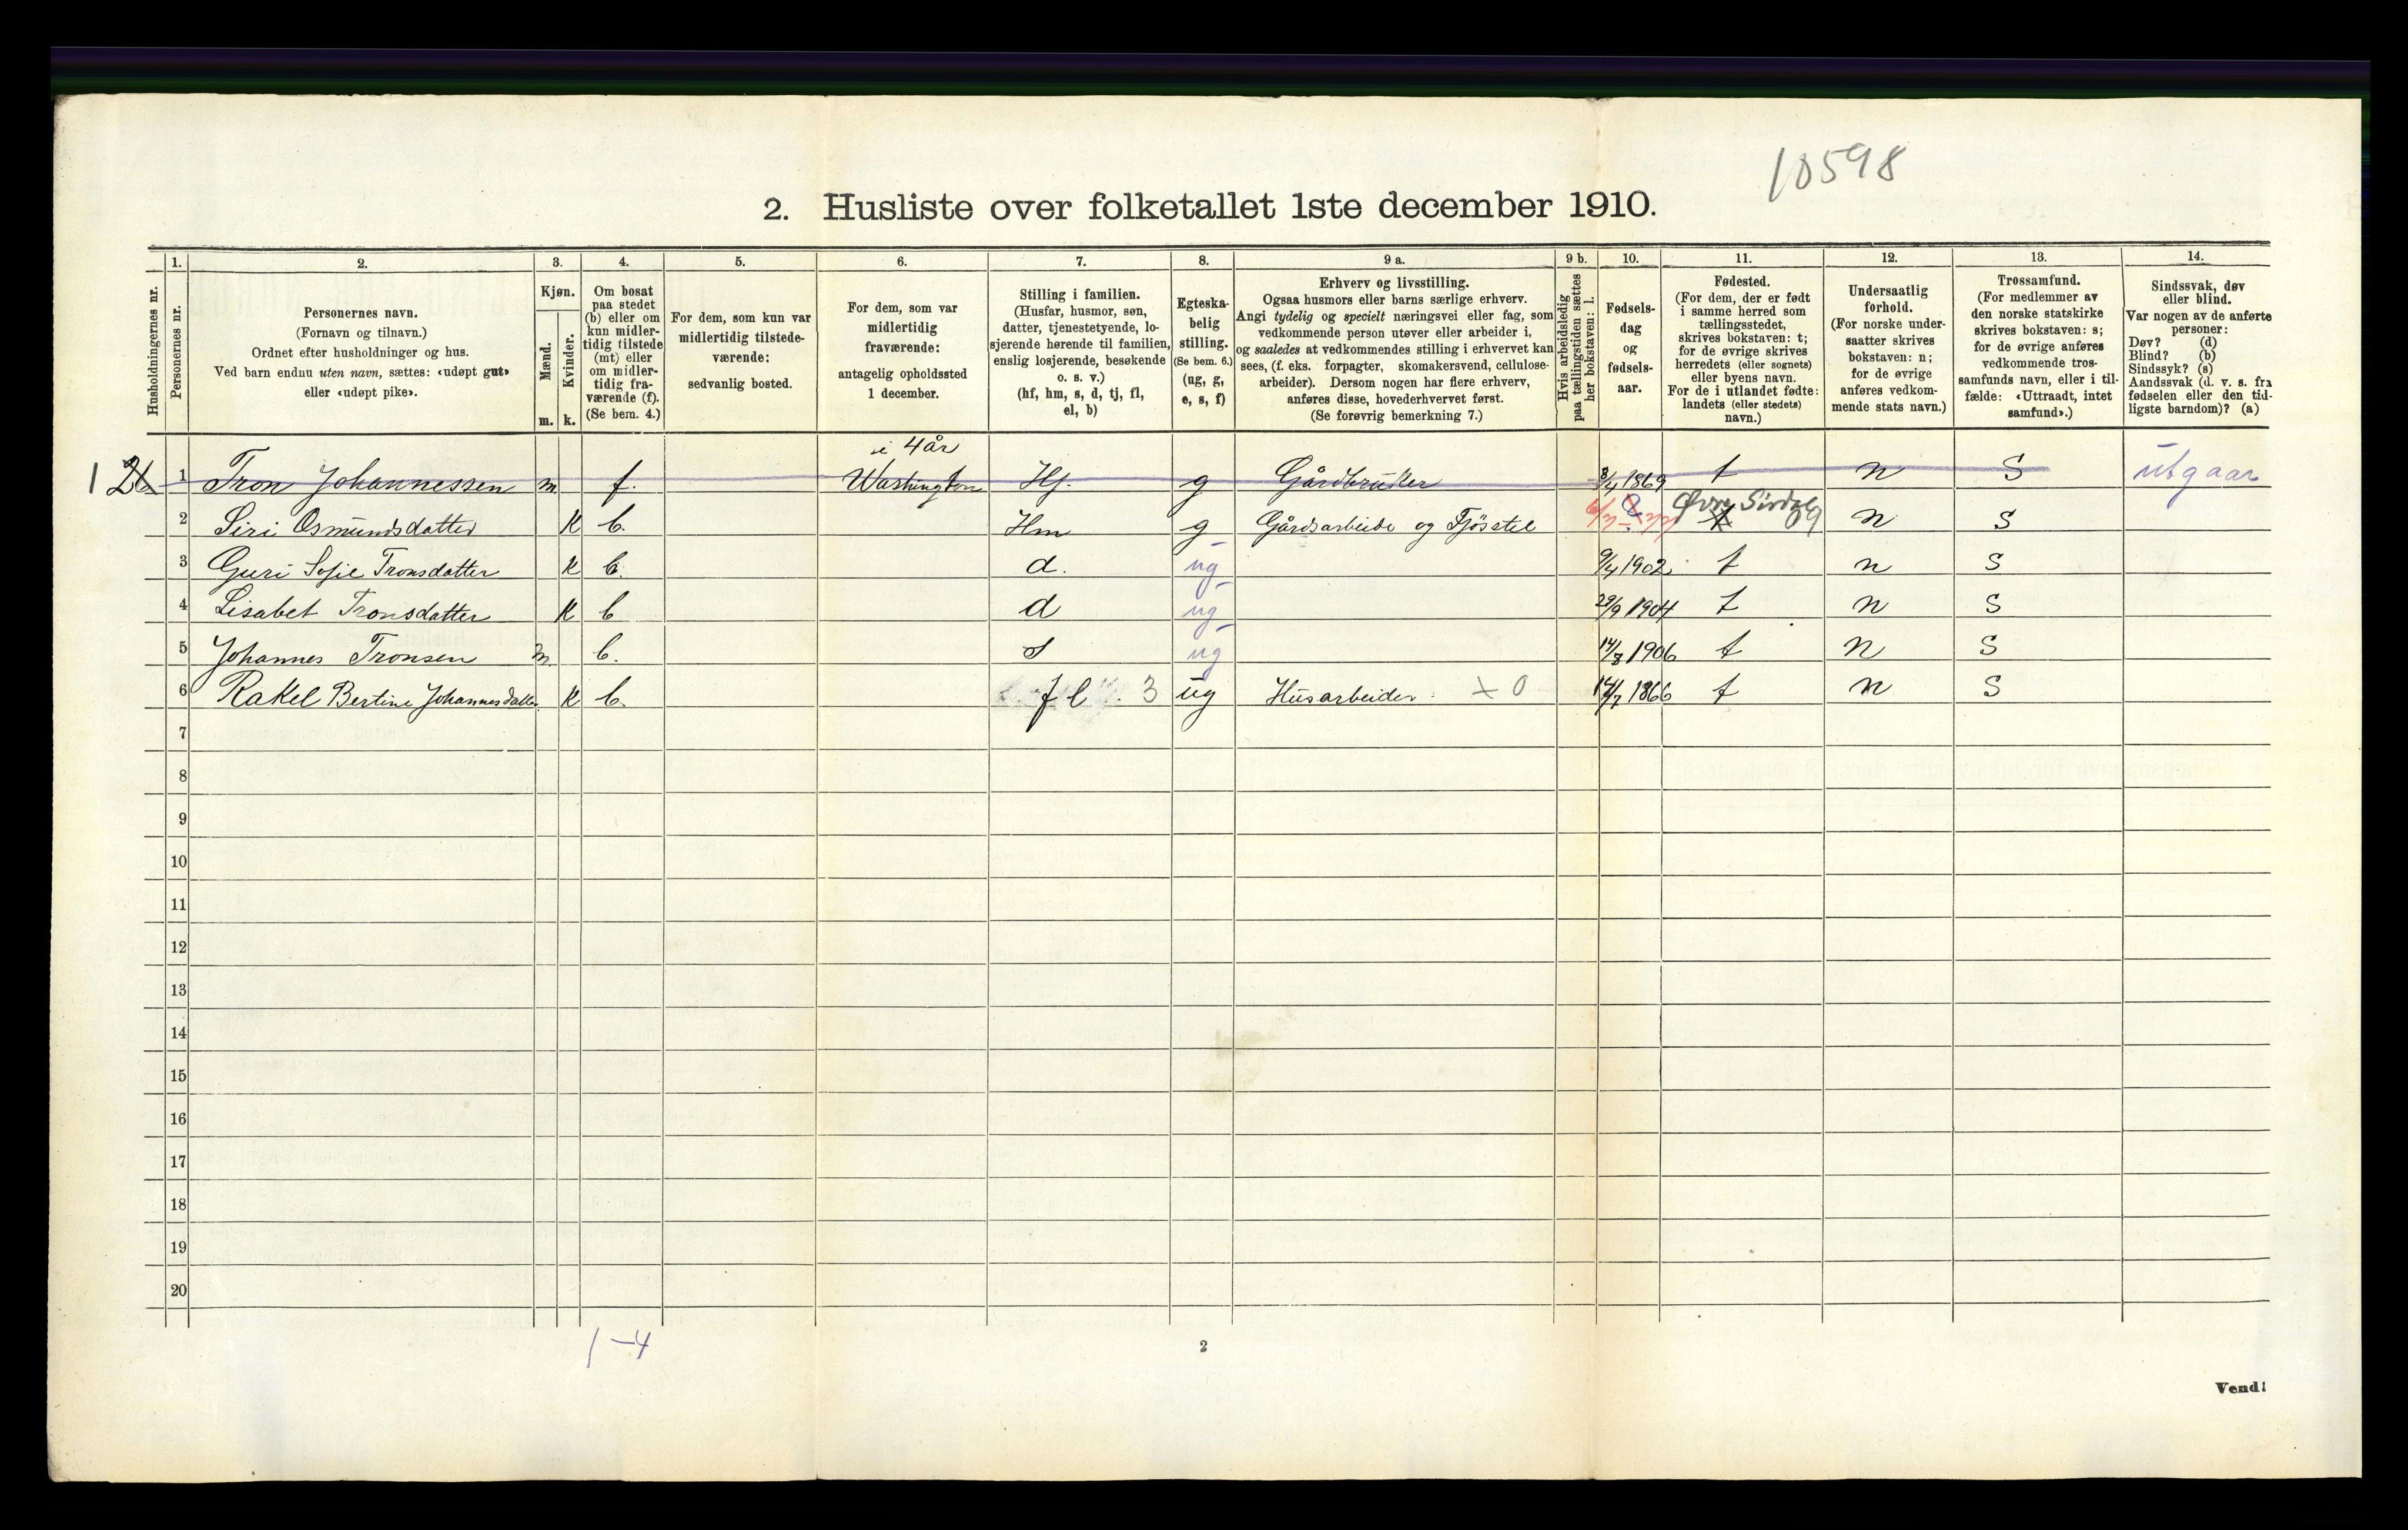 10598
2. Husliste over folketallet 1ste december 1910.
Husholdningernes nr.
1.
Personernes nr.
2.
Personernes navn.
(Fornavn og tilnavn.)
Ordnet efter husholdninger og hus.
Ved barn endnu uten navn, sættes: «udøpt gut»
eller «udøpt pike».
3.
Kjøn.
Mænd.
Kvinder.
m. k.
4.
Om bosat
paa stedet
(b) eller om
kun midler-
tidig tilstede
(mt) eller
om midler-
tidig fra-
værende (f).
(Se bem. 4.)
5.
For dem, som kun var
midlertidig tilstede-
værende:
sedvanlig bosted.
6.
For dem, som var
midlertidig
fraværende:
antagelig opholdssted
1 december.
7.
Stilling i familien.
(Husfar, husmor, søn,
datter, tjenestetyende, lo-
sjerende hørende til familien,
enslig losjerende, besøkende
o. s. v.)
(hf, hm, s, d, tj, fl,
el, b)
8.
Egteska-
belig
stilling.
(Se bem. 6.)
(ug, g,
e, s, f)
9 a.
Erhverv og livsstilling.
Ogsaa husmors eller barns særlige erhverv.
Angi tydelig og specielt næringsvei eller fag, som
vedkommende person utøver eller arbeider i,
og saaledes at vedkommendes stilling i erhvervet kan
sees, (f. eks. forpagter, skomakersvend, cellulose-
arbeider). Dersom nogen har flere erhverv,
anføres disse, hovederhvervet først.
(Se forøvrig bemerkning 7.)
9 b.
Hvis arbeidsledig
paa tællingstiden sættes
her bokstaven: l.
10.
Fødsels-
dag
og
fødsels-
aar.
11.
Fødested.
(For dem, der er født
i samme herred som
tællingsstedet,
skrives bokstaven: t;
for de øvrige skrives
herredets (eller sognets)
eller byens navn.
For de i utlandet fødte:
landets (eller stedets)
navn.)
12.
Undersaatlig
forhold.
(For norske under-
saatter skrives
bokstaven: n;
for de øvrige
anføres vedkom-
mende stats navn.)
13.
Trossamfund.
(For medlemmer av
den norske statskirke
skrives bokstaven: s;
for de øvrige anføres
vedkommende tros-
samfunds navn, eller i til-
fælde: «Uttraadt, intet
samfund».)
14.
Sindssvak, døv
eller blind.
Var nogen av de anførte
personer:
Døv? (d)
Blind? (b)
Sindssyk? (s)
Aandssvak (d. v. s. fra
fødselen eller den tid-
ligste barndom)? (a)
i 4 år
1 1 Tron Johannessen m f. Washington Hf. g Gårdbruker 3/4 1869 t n S utgaar
Øvre Sirdal
2 Siri Osmundsdatter K b. Hm g Gårdsarbeide og Fjösstel t n S
3 Guri Sofie Tronsdatter K b. d. ug 9/4 1902 t n S
4 Lisabet Tronsdatter K b d ug 29/9 1904 t n S
5 Johannes Tronsen m. b. s ug 14/8 1906 t n S
6 Rakel Bertine Johannesdatter K b. fl 3 ug Husarbeider 0 12/7 1866 t n S
7
8
9
10
11
12
13
14
15
16
17
18
19
20
1 – 4
2
Vend!